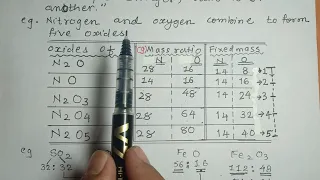 another."
eg. Nitrogen and oxygen combine to form
five oxides
oxides of Mass ratio Fixed mass
N O N O
N2O 28 16 14 8 →1
NO 14 16 14 16 →2
N2O3 28 48 14 24 →3
N2O4 28 64 14 32 →4
N2O5 28 80 14 40 →5
eg SO2 FeO Fe2O3
32:32 56:16 112:48